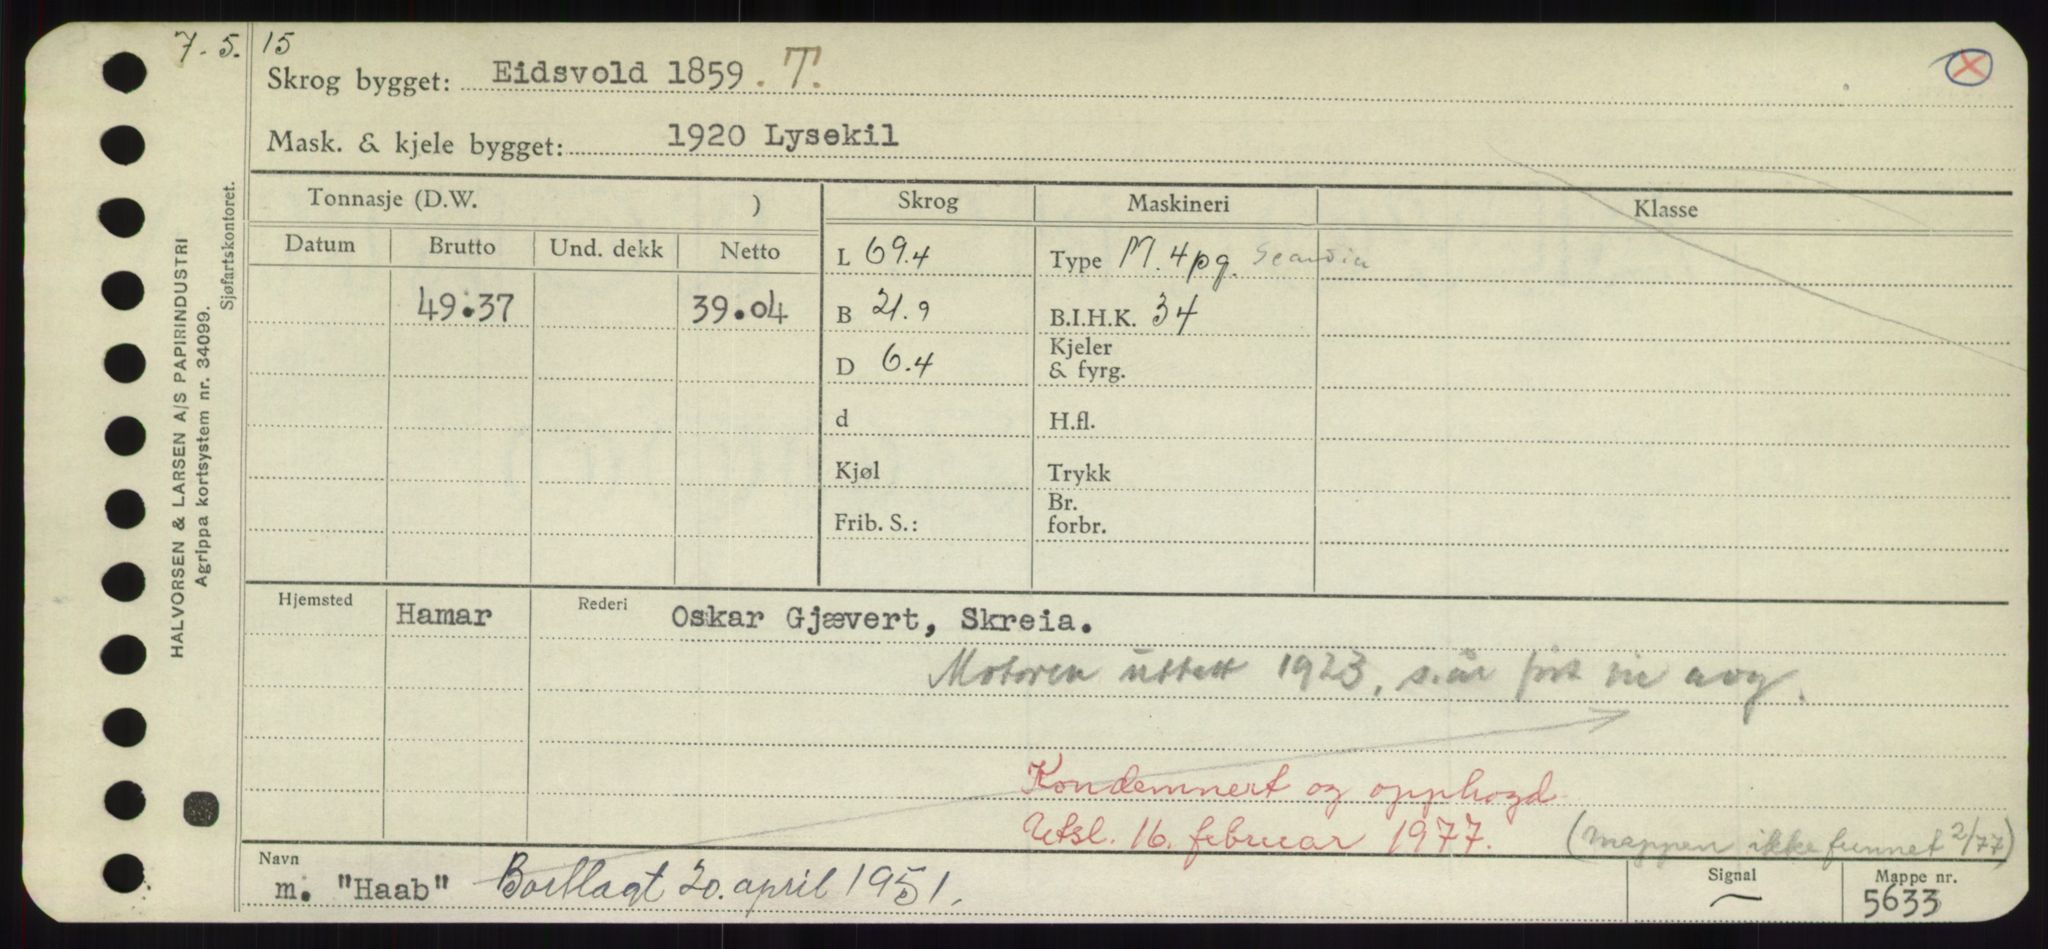 7. 5. 15
Skrog bygget: Eidsvold 1859. T.
Mask. & kjele bygget: 1920 Lysekil
Tonnasje (D.W. ) Skrog Maskineri Klasse
Datum Brutto Und. dekk Netto
L 69.4 Type M. 4pg. Scandia
49.37 39.04 B 21.9 B.I.H.K. 34
D 6.4 Kjeler & fyrg.
d H.fl.
Kjøl Trykk
Frib. S.: Br. forbr.
Hjemsted Hamar Rederi Oskar Gjævert, Skreia.
Motoren uttatt 1923, s.år
Kondemnert og opphogd
Utsl. 16. februar 1977. (mappen ikke funnet 2/77)
Navn Signal Mappe nr.
m. "Haab" Bortlagt 20. april 1951. — 5633
HALVORSEN & LARSEN A/S PAPIRINDUSTRI
Agrippa kortsystem nr. 34099.
Sjøfartskontoret.